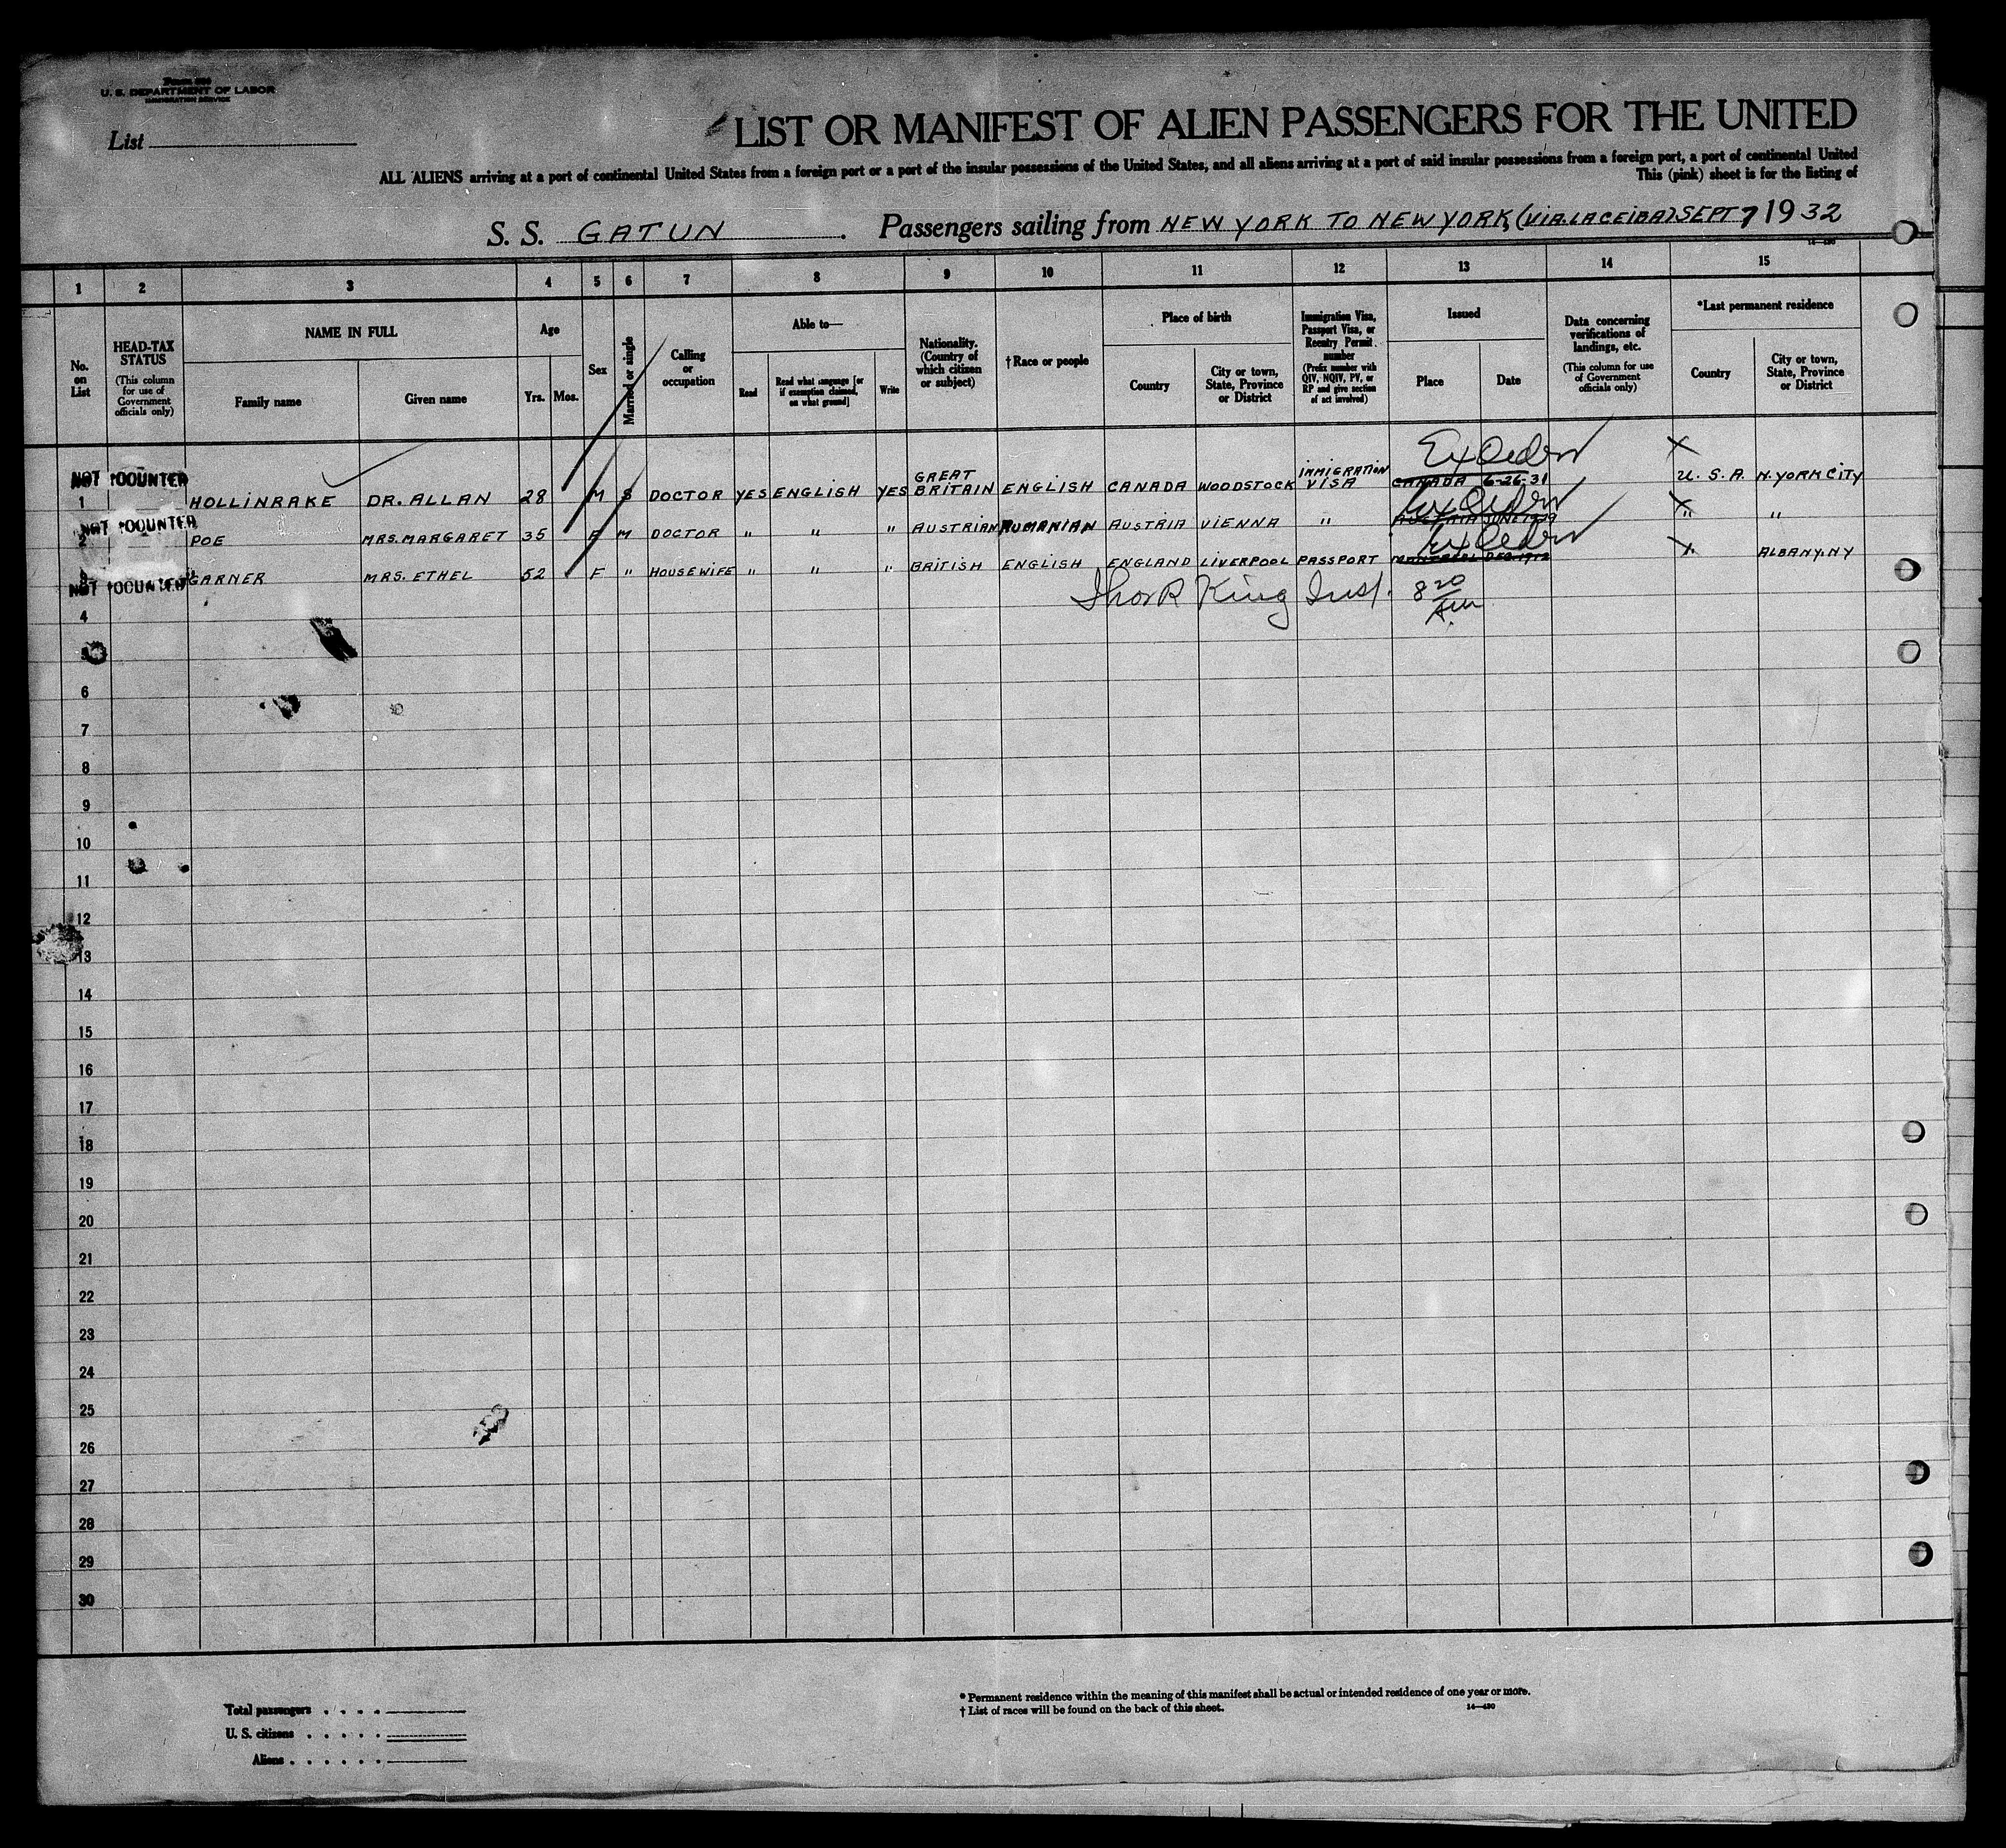 U. S. DEPARTMENT OF LABOR
IMMIGRATION SERVICE
List
LIST OR MANIFEST OF ALIEN PASSENGERS FOR THE UNITED
ALL ALIENS arriving at a port of continental United States from a foreign port or a port of the insular possessions of the United States, and all aliens arriving at a port of said insular possessions from a foreign port, a port of continental United
This (pink) sheet is for the listing of
S. S. GATUN. Passengers sailing from NEW YORK TO NEW YORK, (VIA.LA CEIBA) SEPT 7 1932
1 2 3 4 5 6 7 8 9 10 11 12 13 14 15
No. on List
HEAD-TAX STATUS
(This column for use of Government officials only)
NAME IN FULL
Family name
Given name
Age
Yrs. Mos.
Sex
Married or single
Calling or occupation
Able to—
Read
Read what language [or if exemption claimed, on what ground]
Write
Nationality. (Country of which citizen or subject)
†Race or people
Place of birth
Country
City or town, State, Province or District
Immigration Visa, Passport Visa, or Reentry Permit number
(Prefix number with QIV, NQIV, PV, or RP and give section of act involved)
Issued
Place
Date
Data concerning verifications of landings, etc.
(This column for use of Government officials only)
*Last permanent residence
Country
City or town, State, Province or District
NOT COUNTED
1 HOLLINRAKE DR. ALLAN 28 M S DOCTOR YES ENGLISH YES GREAT BRITAIN ENGLISH CANADA WOODSTOCK IMMIGRATION VISA CANADA 6-26-31 X U. S. A. N.YORK CITY
NOT COUNTED
2 POE MRS. MARGARET 35 F M DOCTOR " " " AUSTRIAN RUMANIAN AUSTRIA VIENNA " AUSTRIA JUNE 1929 X " "
3 GARNER MRS. ETHEL 52 F " HOUSEWIFE " " " BRITISH ENGLISH ENGLAND LIVERPOOL PASSPORT MONTREAL DEC. 1912 X ALBANY. NY
NOT COUNTED
King Inst. 8 20
4
5
6
7
8
9
10
11
12
13
14
15
16
17
18
19
20
21
22
23
24
25
26
27
28
29
30
Total passengers . . . .
U. S. citizens . . . . .
Aliens . . . . . .
* Permanent residence within the meaning of this manifest shall be actual or intended residence of one year or more.
† List of races will be found on the back of this sheet.
14—430